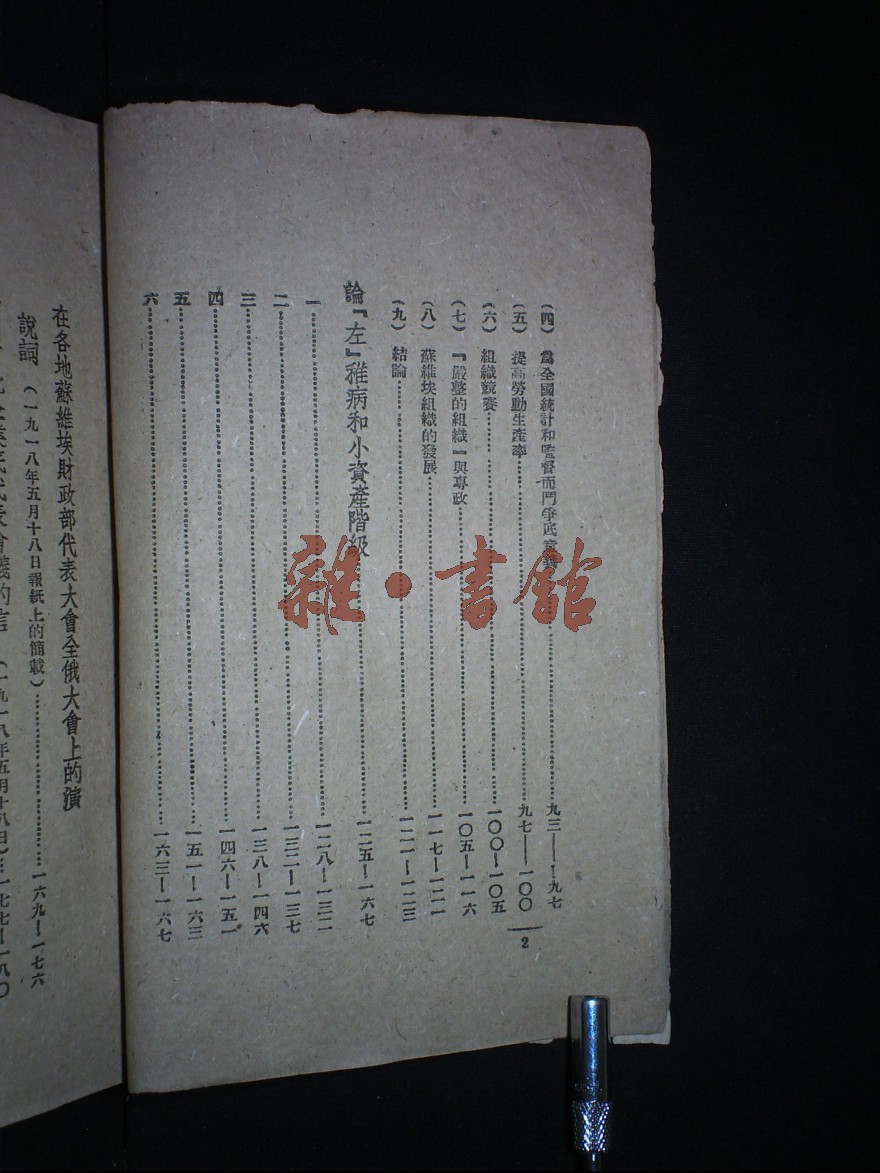 (四) 爲全國統計和監督而鬥爭底意義……九三——九七
(五) 提高勞動生產率……九七——一〇〇
(六) 組織競賽……一〇〇—一〇五
(七) 『嚴整的組織』與專政……一〇五—一一六
(八) 蘇維埃組織的發展……一一七—一二一
(九) 結論……一二一—一二三
論『左』稚病和小資產階級……一二五—一六七
一……一二八—一三二
二……一三二—一三七
三……一三八—一四六
四……一四六—一五一
五……一五一—一六三
六……一六三—一六七
2
在各地蘇維埃財政部代表大會全俄大會上的演
說詞(一九一八年五月十八日報紙上的簡載)……一六九—一七六
代表會議的信(一九一八年五月十八日)…一七七—一八〇
雜·書館